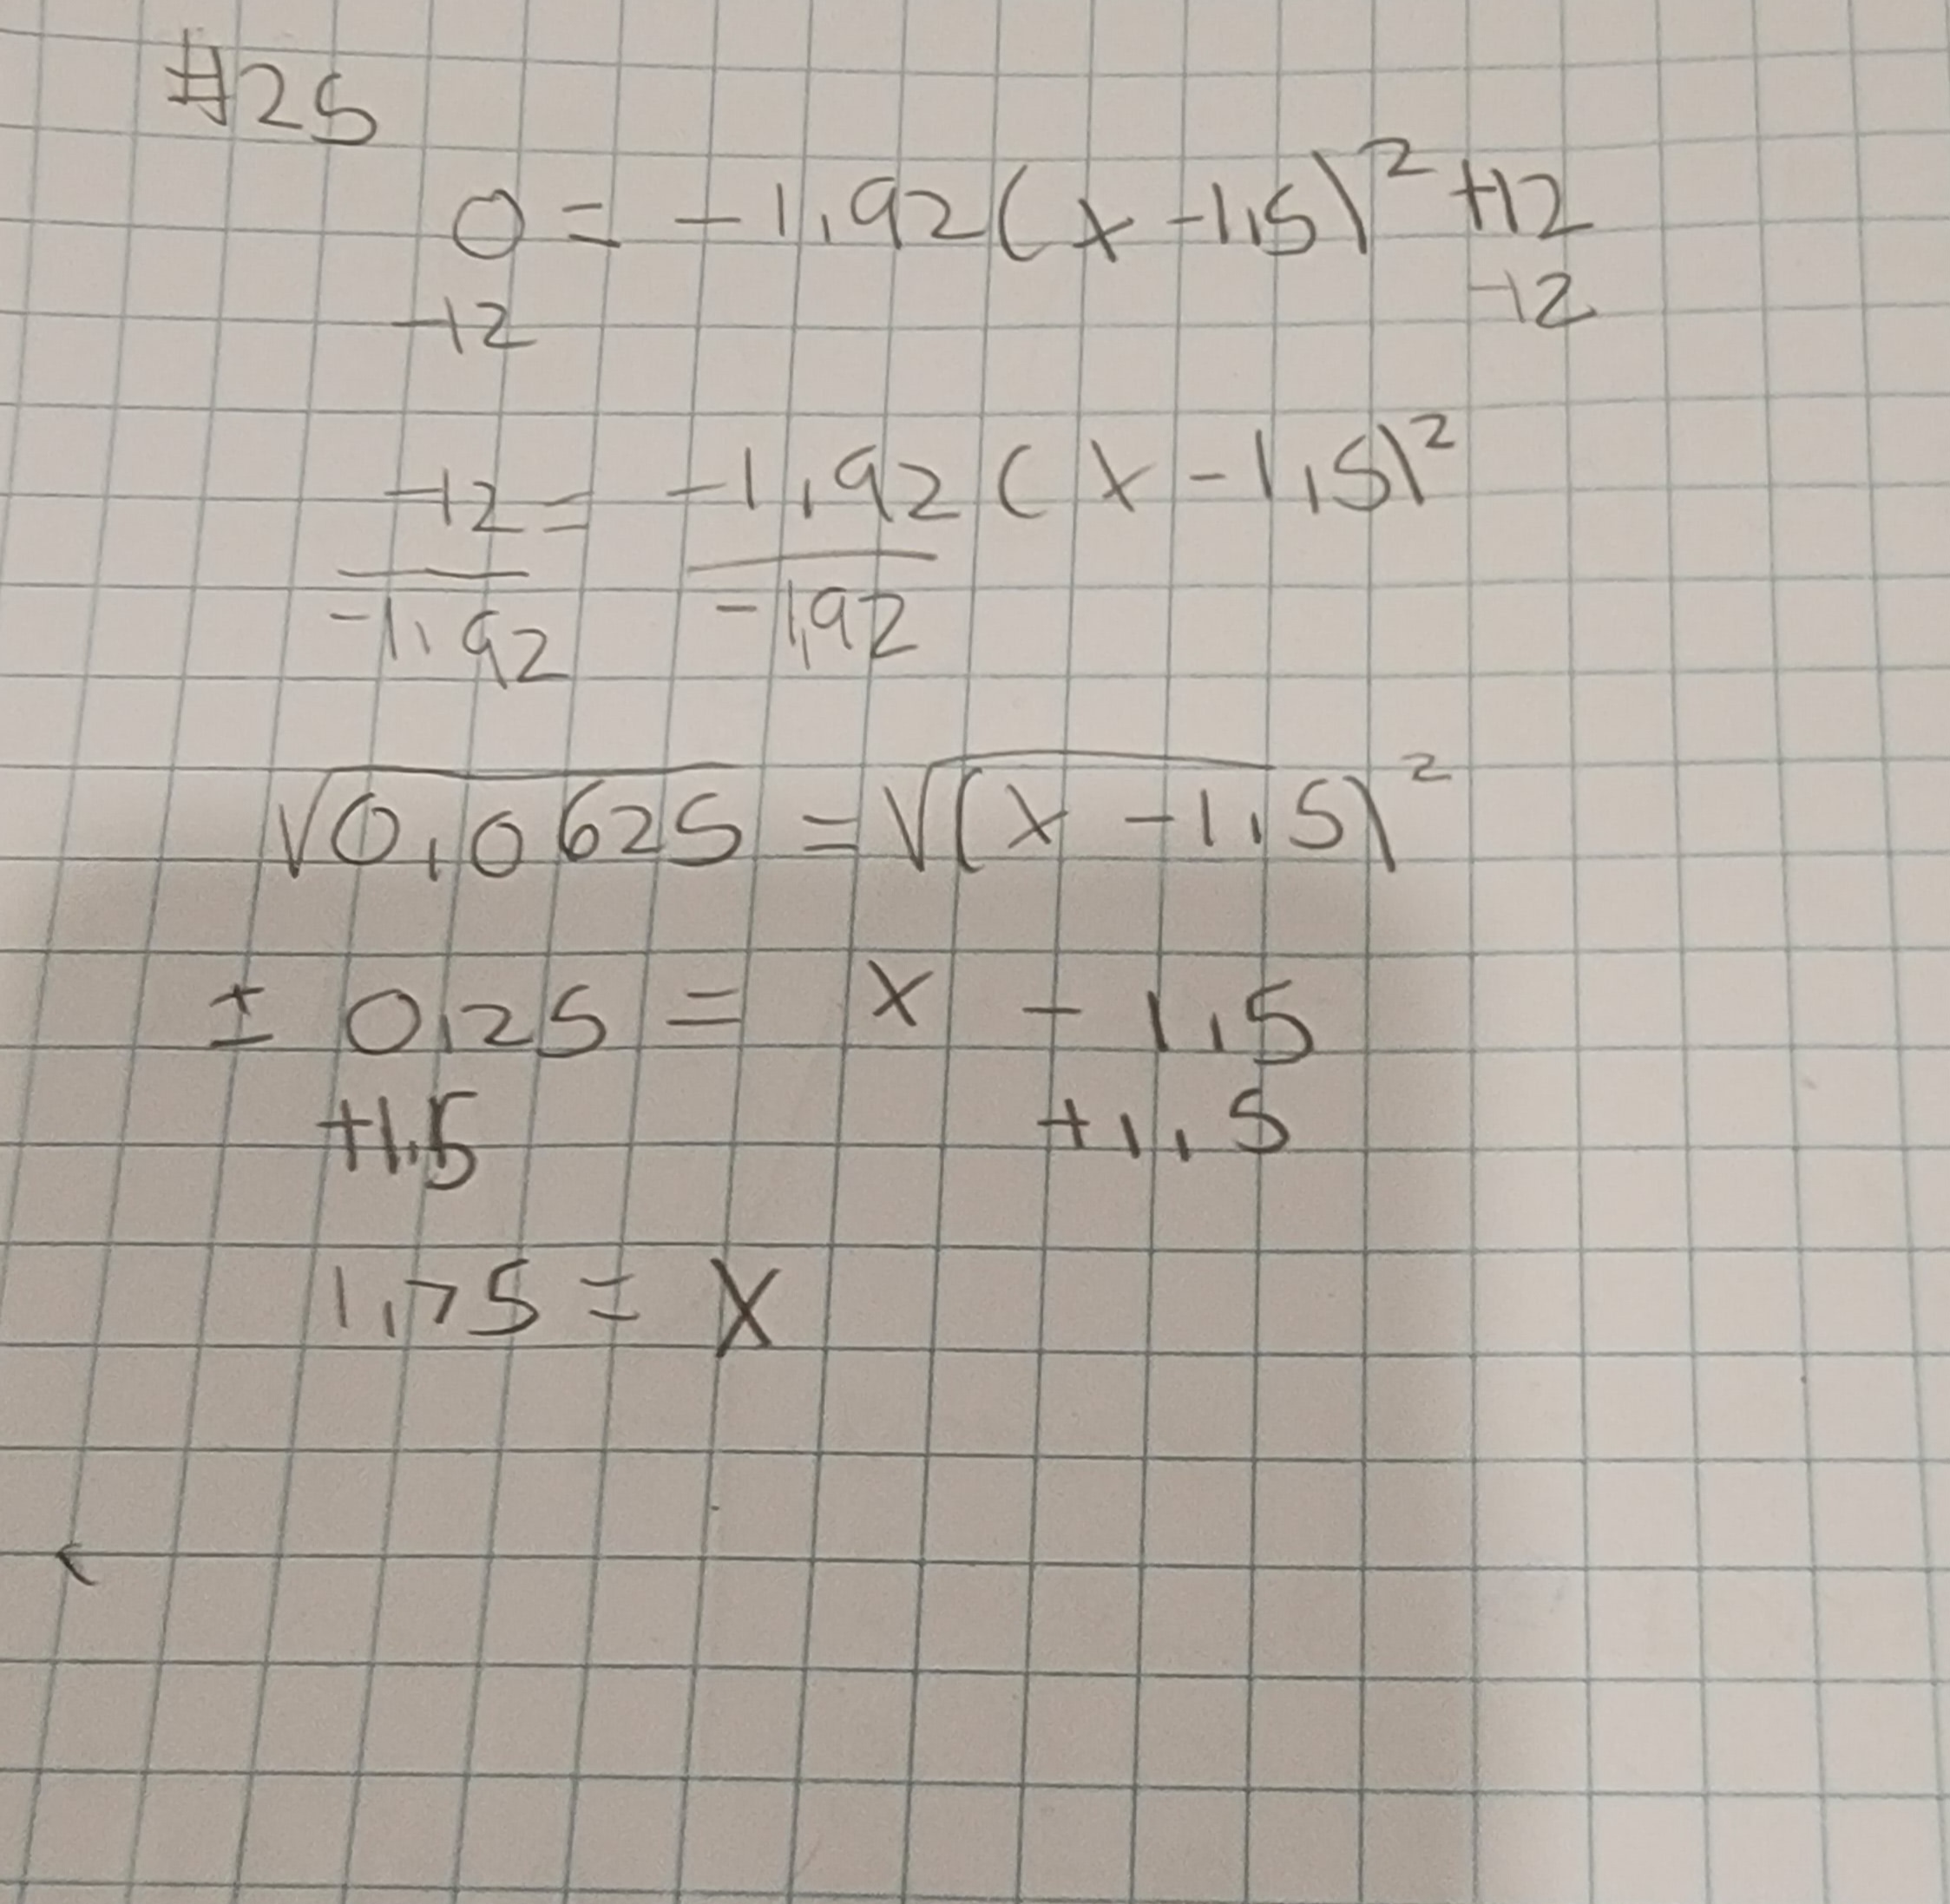 #25
0 = -1,92(x -1,5)² +12
-12 -12
-12 = -1,92 (x - 1,5)²
-1,92 -1,92
√0,0625 = √(x -1,5)²
± 0,25 = x - 1,5
+1,5 +1,5
1,75 = x